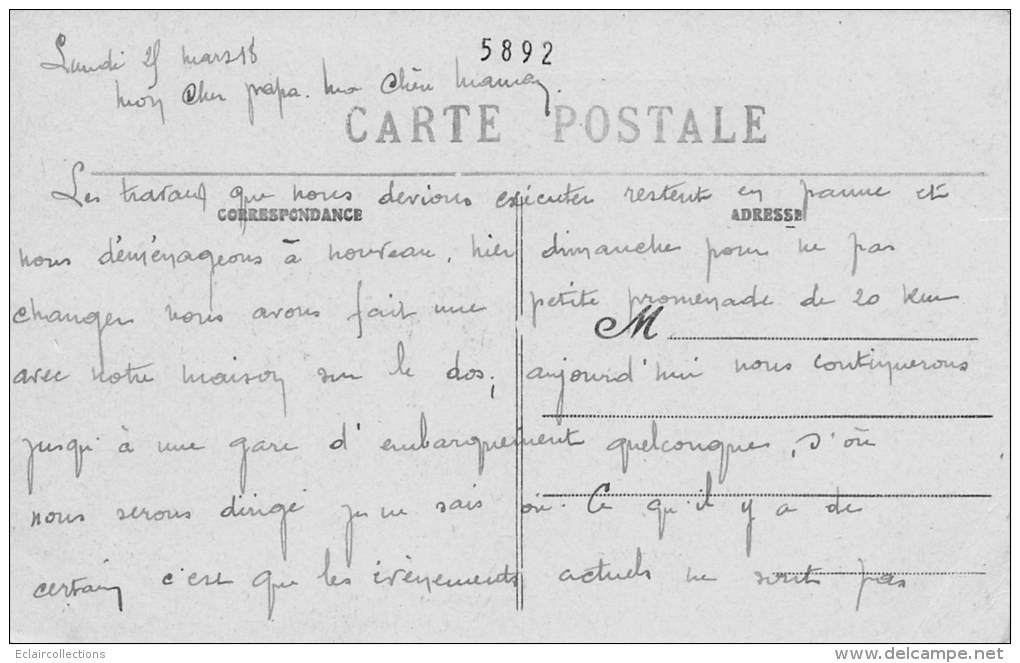 Lundi 25 mars 18
5892
Mon cher papa. Ma chère maman.
CARTE POSTALE
Les travaux que nous devions exécuter restent en panne et
CORRESPONDANCE
ADRESSE
nous déménageons à nouveau, hier dimanche pour ne pas
changer nous avons fait une petite promenade de 20 km
M
avec notre maison sur le dos; aujourd'hui nous continuerons
jusqu'à une gare d'embarquement quelconques, d'où
nous serons dirigé je ne sais où. Ce qu'il y a de
certain c'est que les évènements actuels ne sont pas
Eclaircollections
www.delcampe.net